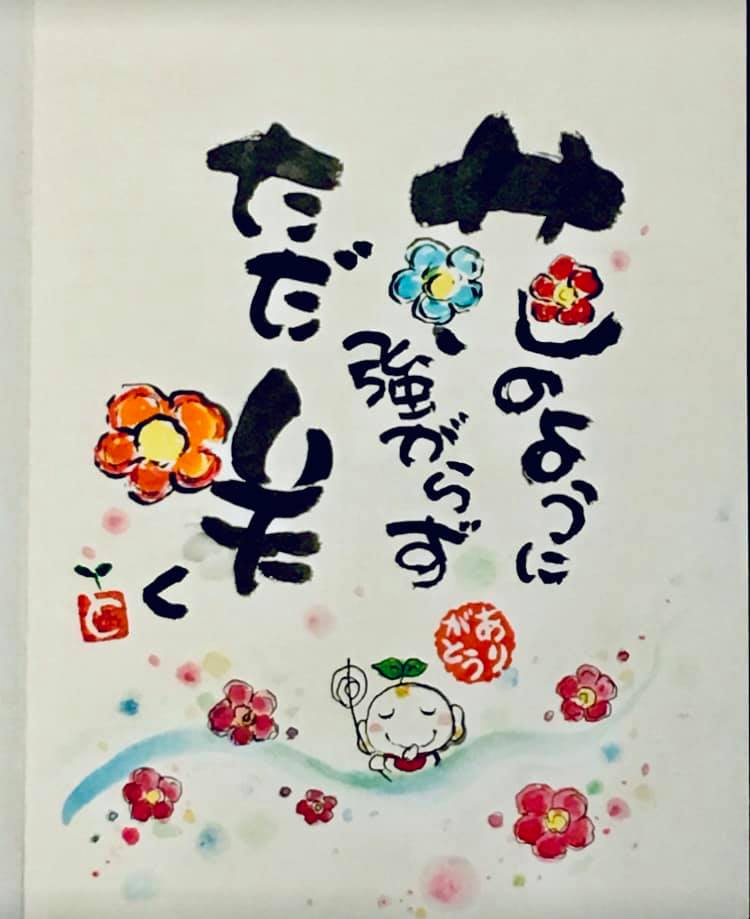 花のように
強がらず
ただ咲く
あり
がとう